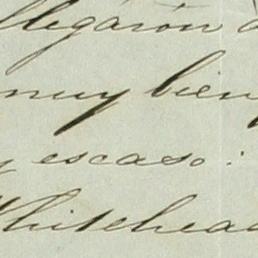 llegaron a
muy bien
y escaso:
Whitehead